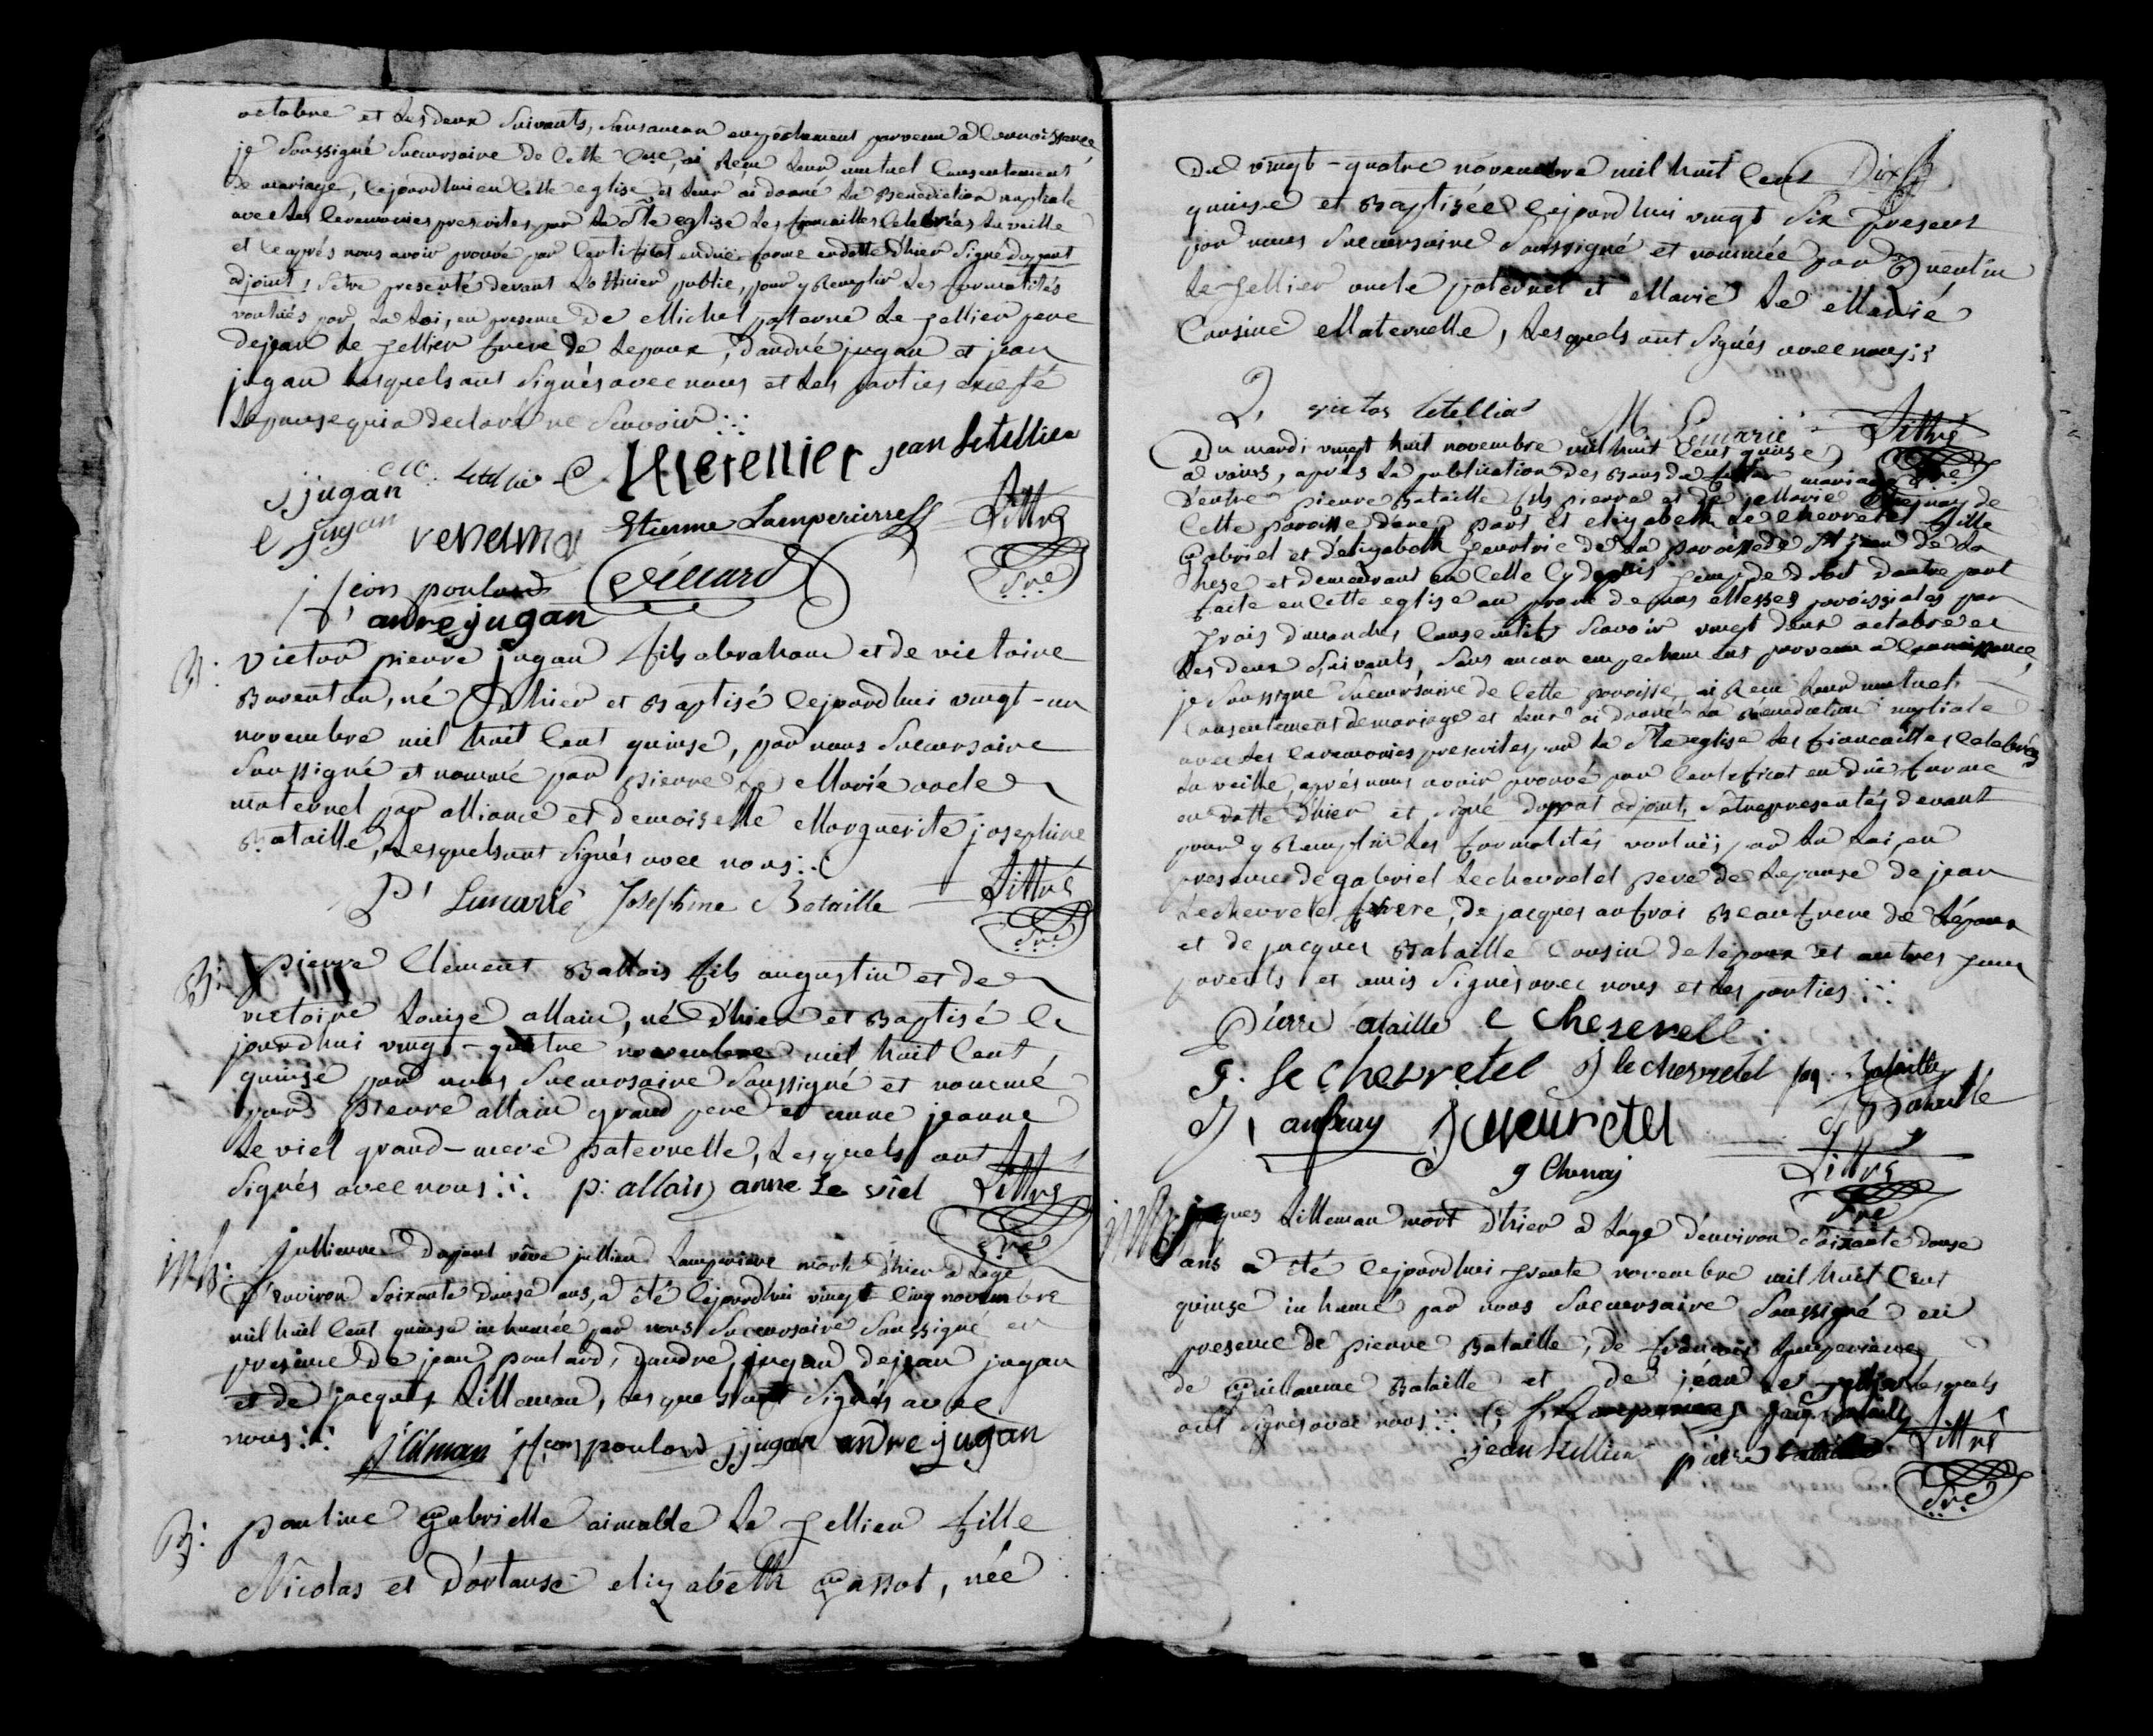 octobre et les deux suivants, sans aucun empêchement parvenu a connoissance,
je soussigné succursaire de cette ai Reçu leur mutuel consentement
de mariage, cejourdhui en cette eglise et leur ai donné la Benediction nuptiale
avec les ceremonies prescrites par la Ste eglise les fiancailles celebrées la veille
et ce après nous avoir prouvé par certificat en due forme en datte d'hier signé dupont
adjoint, s'etre presenté devant L'officier public, pour y Remplir les formalités
voulués par la loi, en presence de Michel paterne Le Tellier pere
de jean Le Tellier frere de Lepoux, d'andré jugan et jean
jugan lesquels ont signés avec nous et les parties excepté
Lepouse qui a declaré ne scavoir
jugan Letellier jean Letellier
jugan Etienne Lamperierre Littré
j poulard
andre jugan
B: victor pierre jugan fils abraham et de victoire
Baventau, né d'hier et Baptisé cejourdhui vingt-un
novembre mil huit cent quinse, par nous succursaire
soussigné et nommé par pierre Le Marié oncle
maternel par alliance et demoiselle Marguerite josephine
Bataille, Lesquels ont signés avec nous
P' Lemarié Josephine Bataille Littré
Sre
B: pierre Clement Battois fils augustin et de
victoire Louise allain, né d'hier et Baptisé ce
jourdhui vingt-quatre novembre mil huit cent
quinse par nous succursaire soussigné et nommé
par pierre allain grand pere et anne jeanne
Le viel grand-mere paternelle, Lesquels ont
signés avec nous p: allain anne Le viel Littré
Sre
inh: jullienne dupont vève jullien Lamperiere morte d'hier a Lage
d'environ soixante douse ans, a été cejourdhui vingt cinq novembre
mil huit cent quinse inhumée par nous succursaire soussigné en
presence de jean poulard, d'andre jugan de jean jugan
et de jacques Lilleman, lesquels ont signés avec
nous j lilman poulard j jugan andre jugan
B: pauline Gabrielle aimable Le Tellier fille
Nicolas et d'ortanse elizabeth Gassot, née
du vingt-quatre novembre mil huit cent Dix
quinse et Baptisée cejourdhui vingt six present
par nous succursaire soussigné et nommée par Quentin
Le Tellier oncle paternel et Marie Le Marié
Cousine Maternelle, Lesquels ont signés avec nous
Q, victor letellier M Lemarié Littré
Sre
Du mardi vingt huit novembre mil huit cent quinse
a vaius, aprés la publication des Bans du mariage
d'entre pierre Bataille fils pierre et de Marie de
Cette paroisse d'une part et elizabeth Le chevretel fille
Gabriel et d'elizabeth de la paroisse de St jean de la
hese et demeurant en celle cy depuis temps de droit d'autre part
faite en cette eglise au prone de nos Messes paroissiales par
trois dimanches consecutifs scavoir vingt deux octobre et
les deux suivants, sans aucun empechement parvenu a connoissance,
je soussigné succursaire de cette paroisse, ai Reçu leur mutuel
consentement de mariage et leur ai donné la Benediction nuptiale
avec les ceremonies prescrites par la Ste eglise les fiancailles celebrées
la veille, aprés nous avoir prouvé par certificat en due forme
en datte d'hier et signé dupont adjoint, s'etre presentés devant
pour y Remplir les formalités voulués par la Loi en
presence de gabriel Lechevretel pere de Lepouse de jean
Lechevretel frere, de jacques aufroi Beaufrere de Lépoux
et de jacques Bataille cousin de lépoux et autres
parents et amis signés avec nous et les parties
Pierre Bataille
G. le chevretel J lechevretel jaq. Bataille
Bataille
Littré
Sre
inh: jacques Lilleman mort d'hier a Lage d'environ soixante douse
ans a été cejourdhui trente novembre mil huit cent
quinse inhumé par nous succursaire soussigné en
presence de pierre Bataille, de francois Lamperiere
de Guillaume Bataille et de jean Le Tellier lesquels
ont signés avec nous
jean letellier pierre bataille Littré
Sre